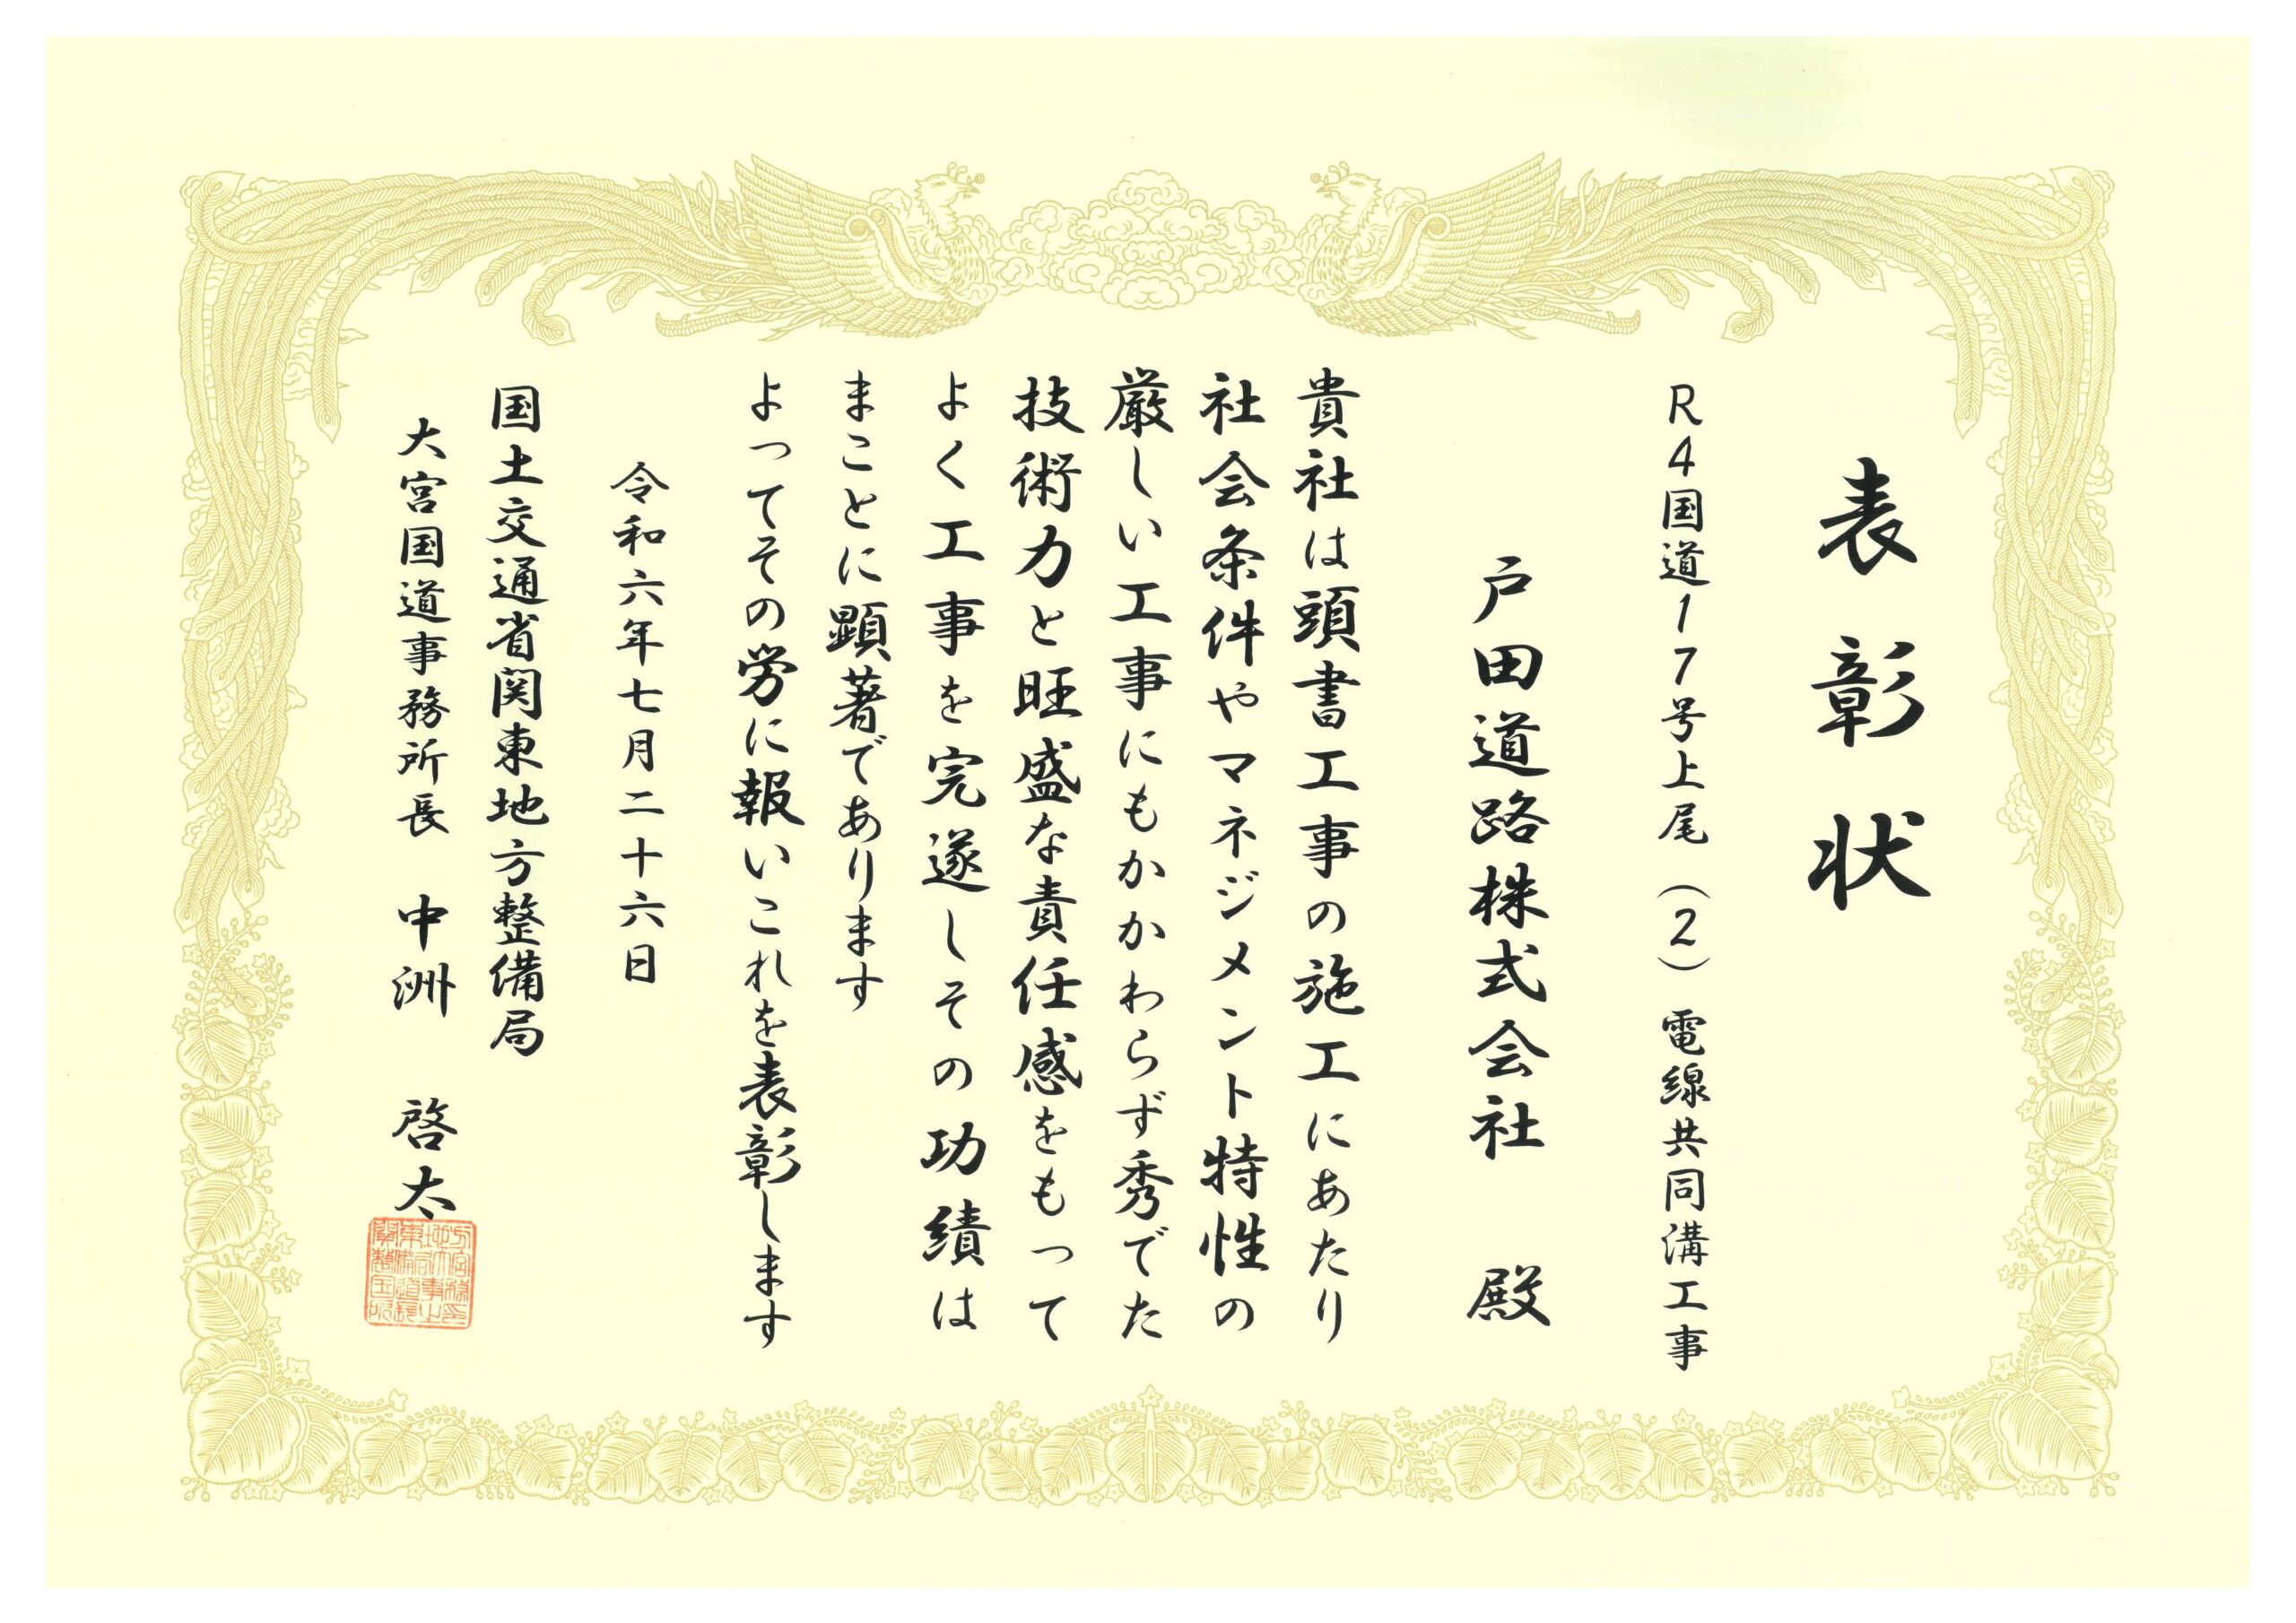 表彰状
R4国道17号上尾(2)電線共同溝工事
戸田道路株式会社 殿
貴社は頭書工事の施工にあたり
社会条件やマネジメント特性の
厳しい工事にもかかわらず秀でた
技術力と旺盛な責任感をもって
よく工事を完遂しその功績は
まことに顕著であります
よってその労に報いこれを表彰します
令和六年七月二十六日
国土交通省関東地方整備局
大宮国道事務所長 中洲 啓太